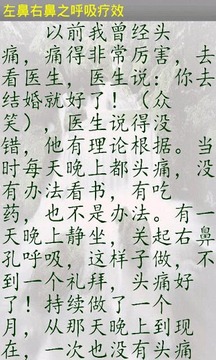 左鼻右鼻之呼吸疗效
以前我曾经头
痛，痛得非常厉害，去
看医生，医生说：你去
结婚就好了！（众
笑），医生说得没
错，他有理论根据。当
时每天晚上都头痛，没
有办法看书，有吃
药，也不是办法。有一
天晚上静坐，关起右鼻
孔呼吸，这样子做，不
到一个礼拜，头痛好
了！持续做了一个
月，从那天晚上到现
在，一次也没有头痛